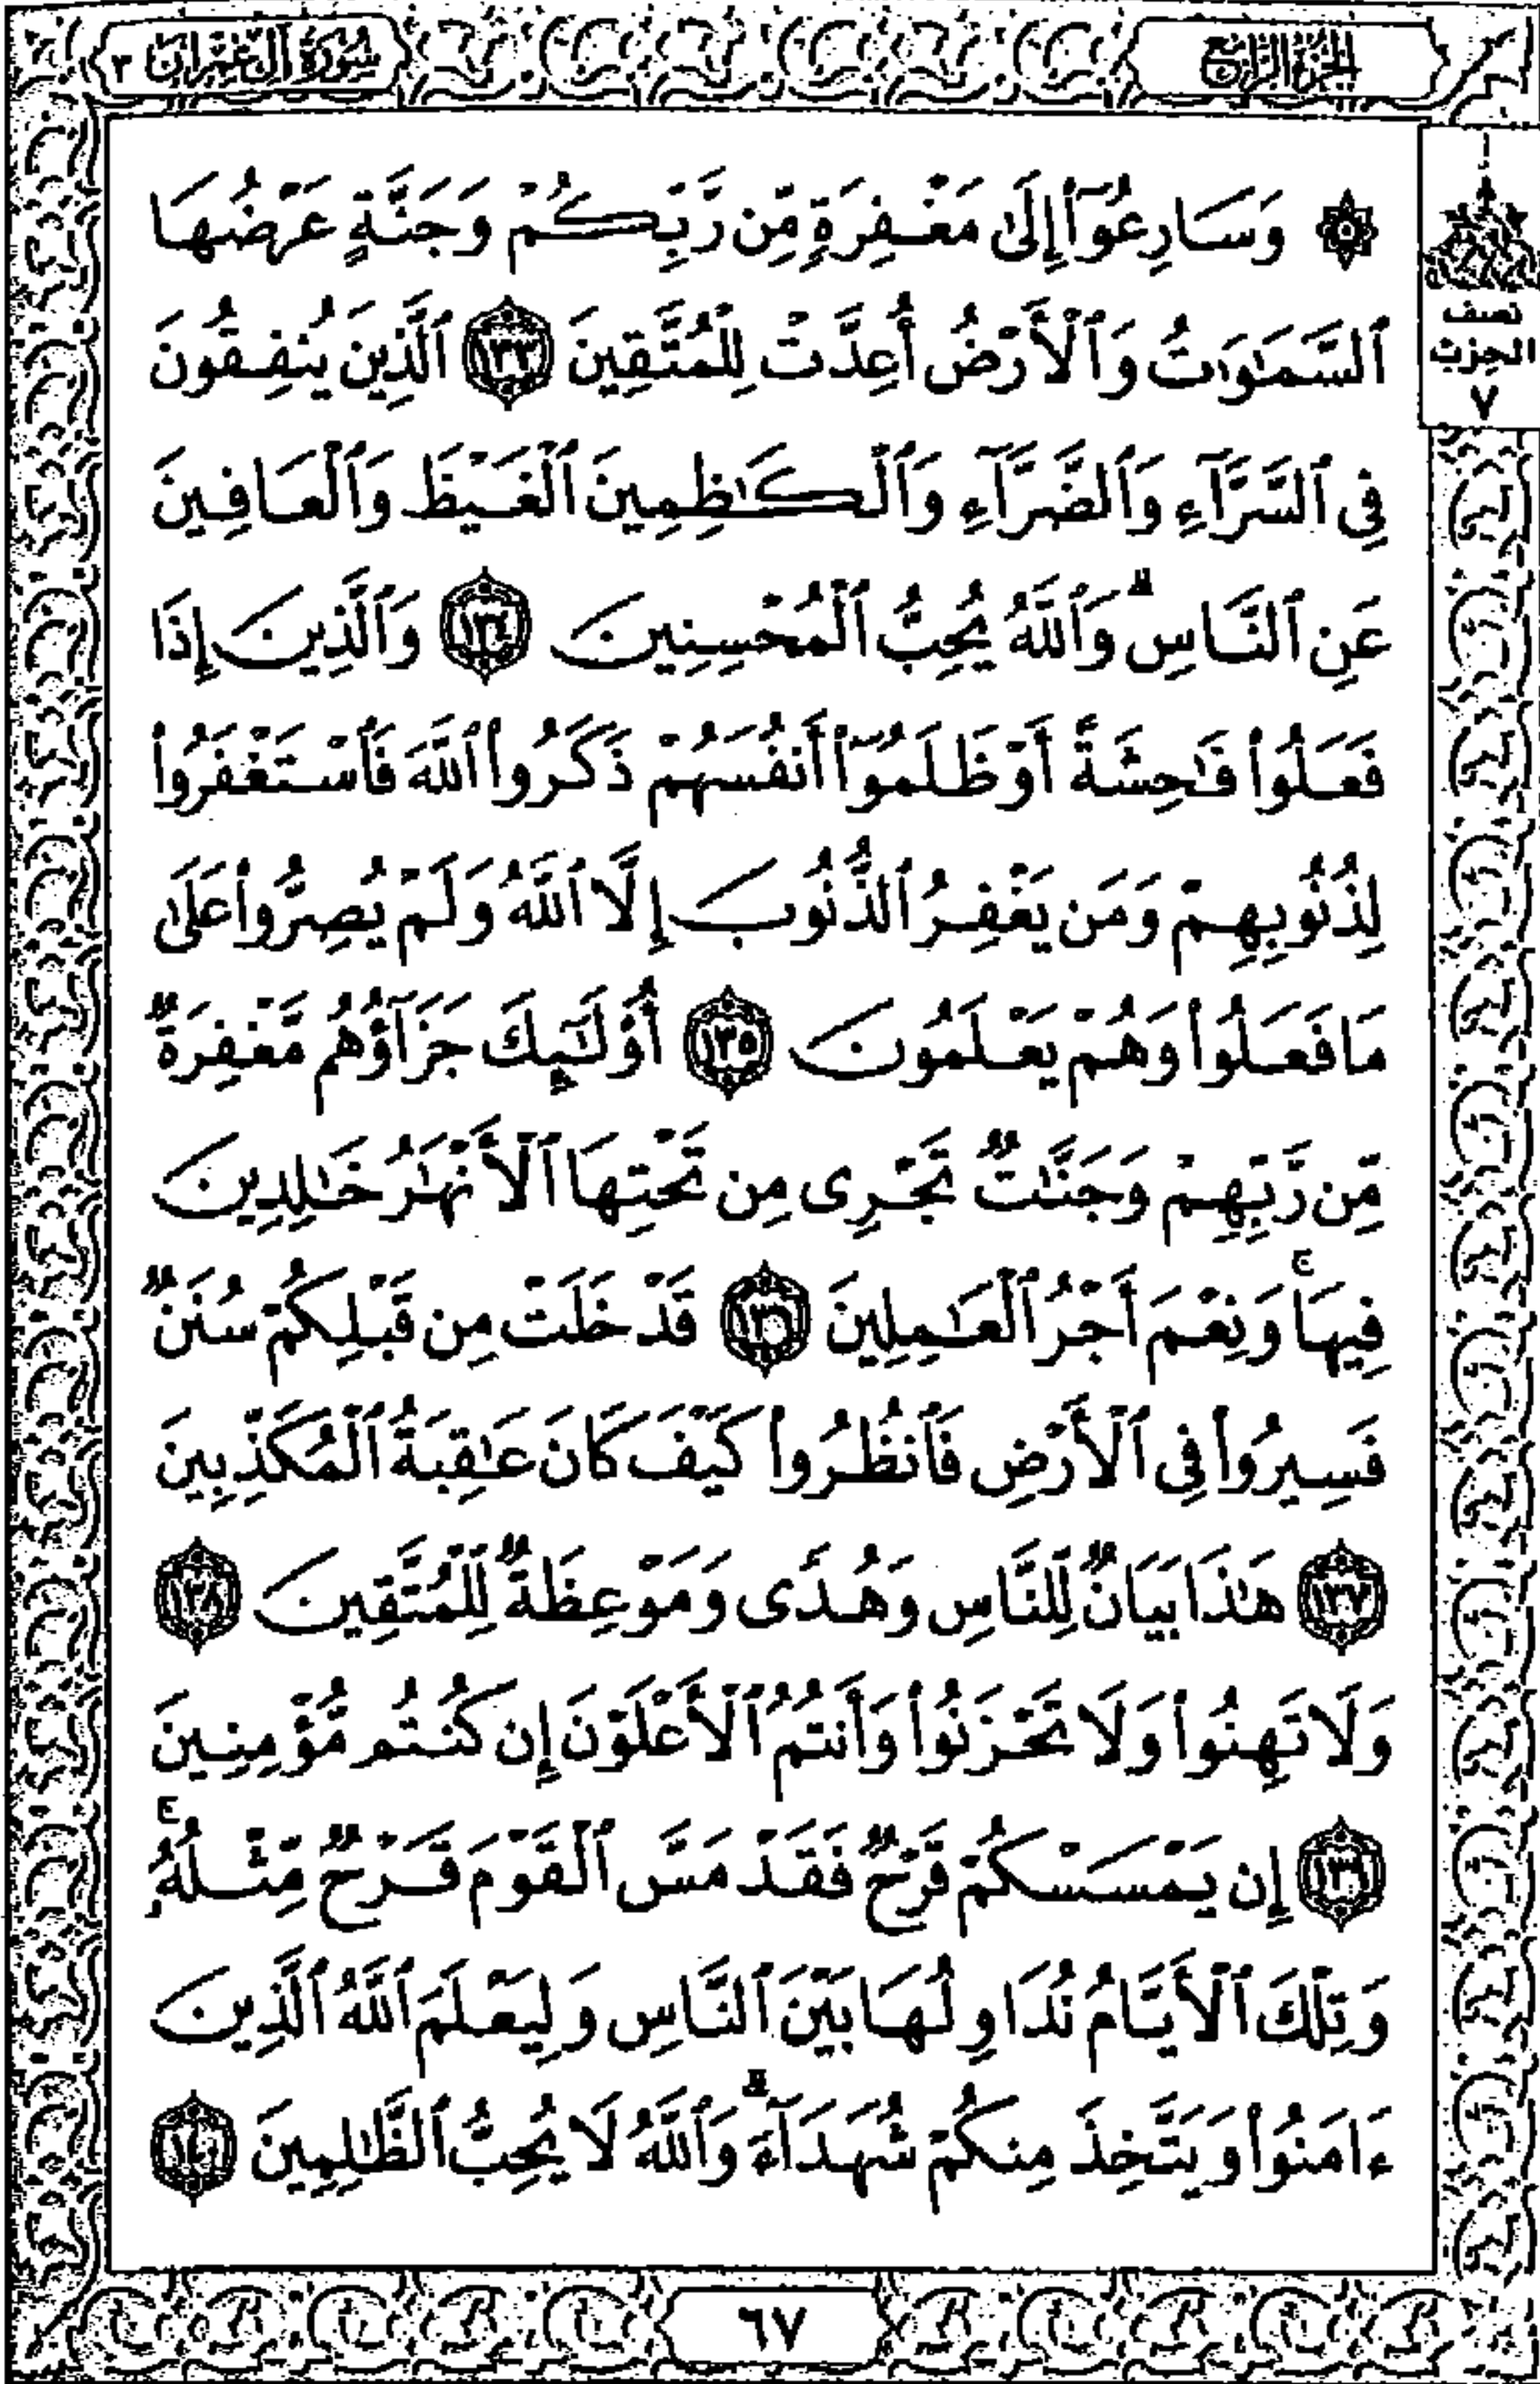 الجزء الرابع
سورة آل عمران ٣
نصف
الحزب
٧
۞ وَسَارِعُوٓا۟ إِلَىٰ مَغْفِرَةٍ مِّن رَّبِّكُمْ وَجَنَّةٍ عَرْضُهَا
ٱلسَّمَٰوَٰتُ وَٱلْأَرْضُ أُعِدَّتْ لِلْمُتَّقِينَ ١٣٣ ٱلَّذِينَ يُنفِقُونَ
فِى ٱلسَّرَّآءِ وَٱلضَّرَّآءِ وَٱلْكَٰظِمِينَ ٱلْغَيْظَ وَٱلْعَافِينَ
عَنِ ٱلنَّاسِ ۗ وَٱللَّهُ يُحِبُّ ٱلْمُحْسِنِينَ ١٣٤ وَٱلَّذِينَ إِذَا
فَعَلُوا۟ فَٰحِشَةً أَوْ ظَلَمُوٓا۟ أَنفُسَهُمْ ذَكَرُوا۟ ٱللَّهَ فَٱسْتَغْفَرُوا۟
لِذُنُوبِهِمْ وَمَن يَغْفِرُ ٱلذُّنُوبَ إِلَّا ٱللَّهُ وَلَمْ يُصِرُّوا۟ عَلَىٰ
مَا فَعَلُوا۟ وَهُمْ يَعْلَمُونَ ١٣٥ أُو۟لَٰٓئِكَ جَزَآؤُهُم مَّغْفِرَةٌ
مِّن رَّبِّهِمْ وَجَنَّٰتٌ تَجْرِى مِن تَحْتِهَا ٱلْأَنْهَٰرُ خَٰلِدِينَ
فِيهَا ۚ وَنِعْمَ أَجْرُ ٱلْعَٰمِلِينَ ١٣٦ قَدْ خَلَتْ مِن قَبْلِكُمْ سُنَنٌ
فَسِيرُوا۟ فِى ٱلْأَرْضِ فَٱنظُرُوا۟ كَيْفَ كَانَ عَٰقِبَةُ ٱلْمُكَذِّبِينَ
١٣٧ هَٰذَا بَيَانٌ لِّلنَّاسِ وَهُدًى وَمَوْعِظَةٌ لِّلْمُتَّقِينَ ١٣٨
وَلَا تَهِنُوا۟ وَلَا تَحْزَنُوا۟ وَأَنتُمُ ٱلْأَعْلَوْنَ إِن كُنتُم مُّؤْمِنِينَ
١٣٩ إِن يَمْسَسْكُمْ قَرْحٌ فَقَدْ مَسَّ ٱلْقَوْمَ قَرْحٌ مِّثْلُهُۥ ۚ
وَتِلْكَ ٱلْأَيَّامُ نُدَاوِلُهَا بَيْنَ ٱلنَّاسِ وَلِيَعْلَمَ ٱللَّهُ ٱلَّذِينَ
ءَامَنُوا۟ وَيَتَّخِذَ مِنكُمْ شُهَدَآءَ ۗ وَٱللَّهُ لَا يُحِبُّ ٱلظَّٰلِمِينَ ١٤٠
٦٧